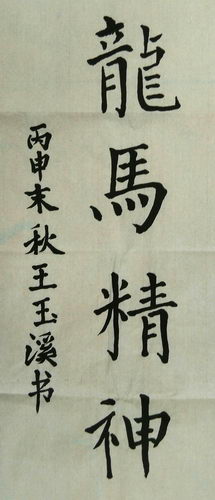 龍馬精神
丙申末秋王玉溪书